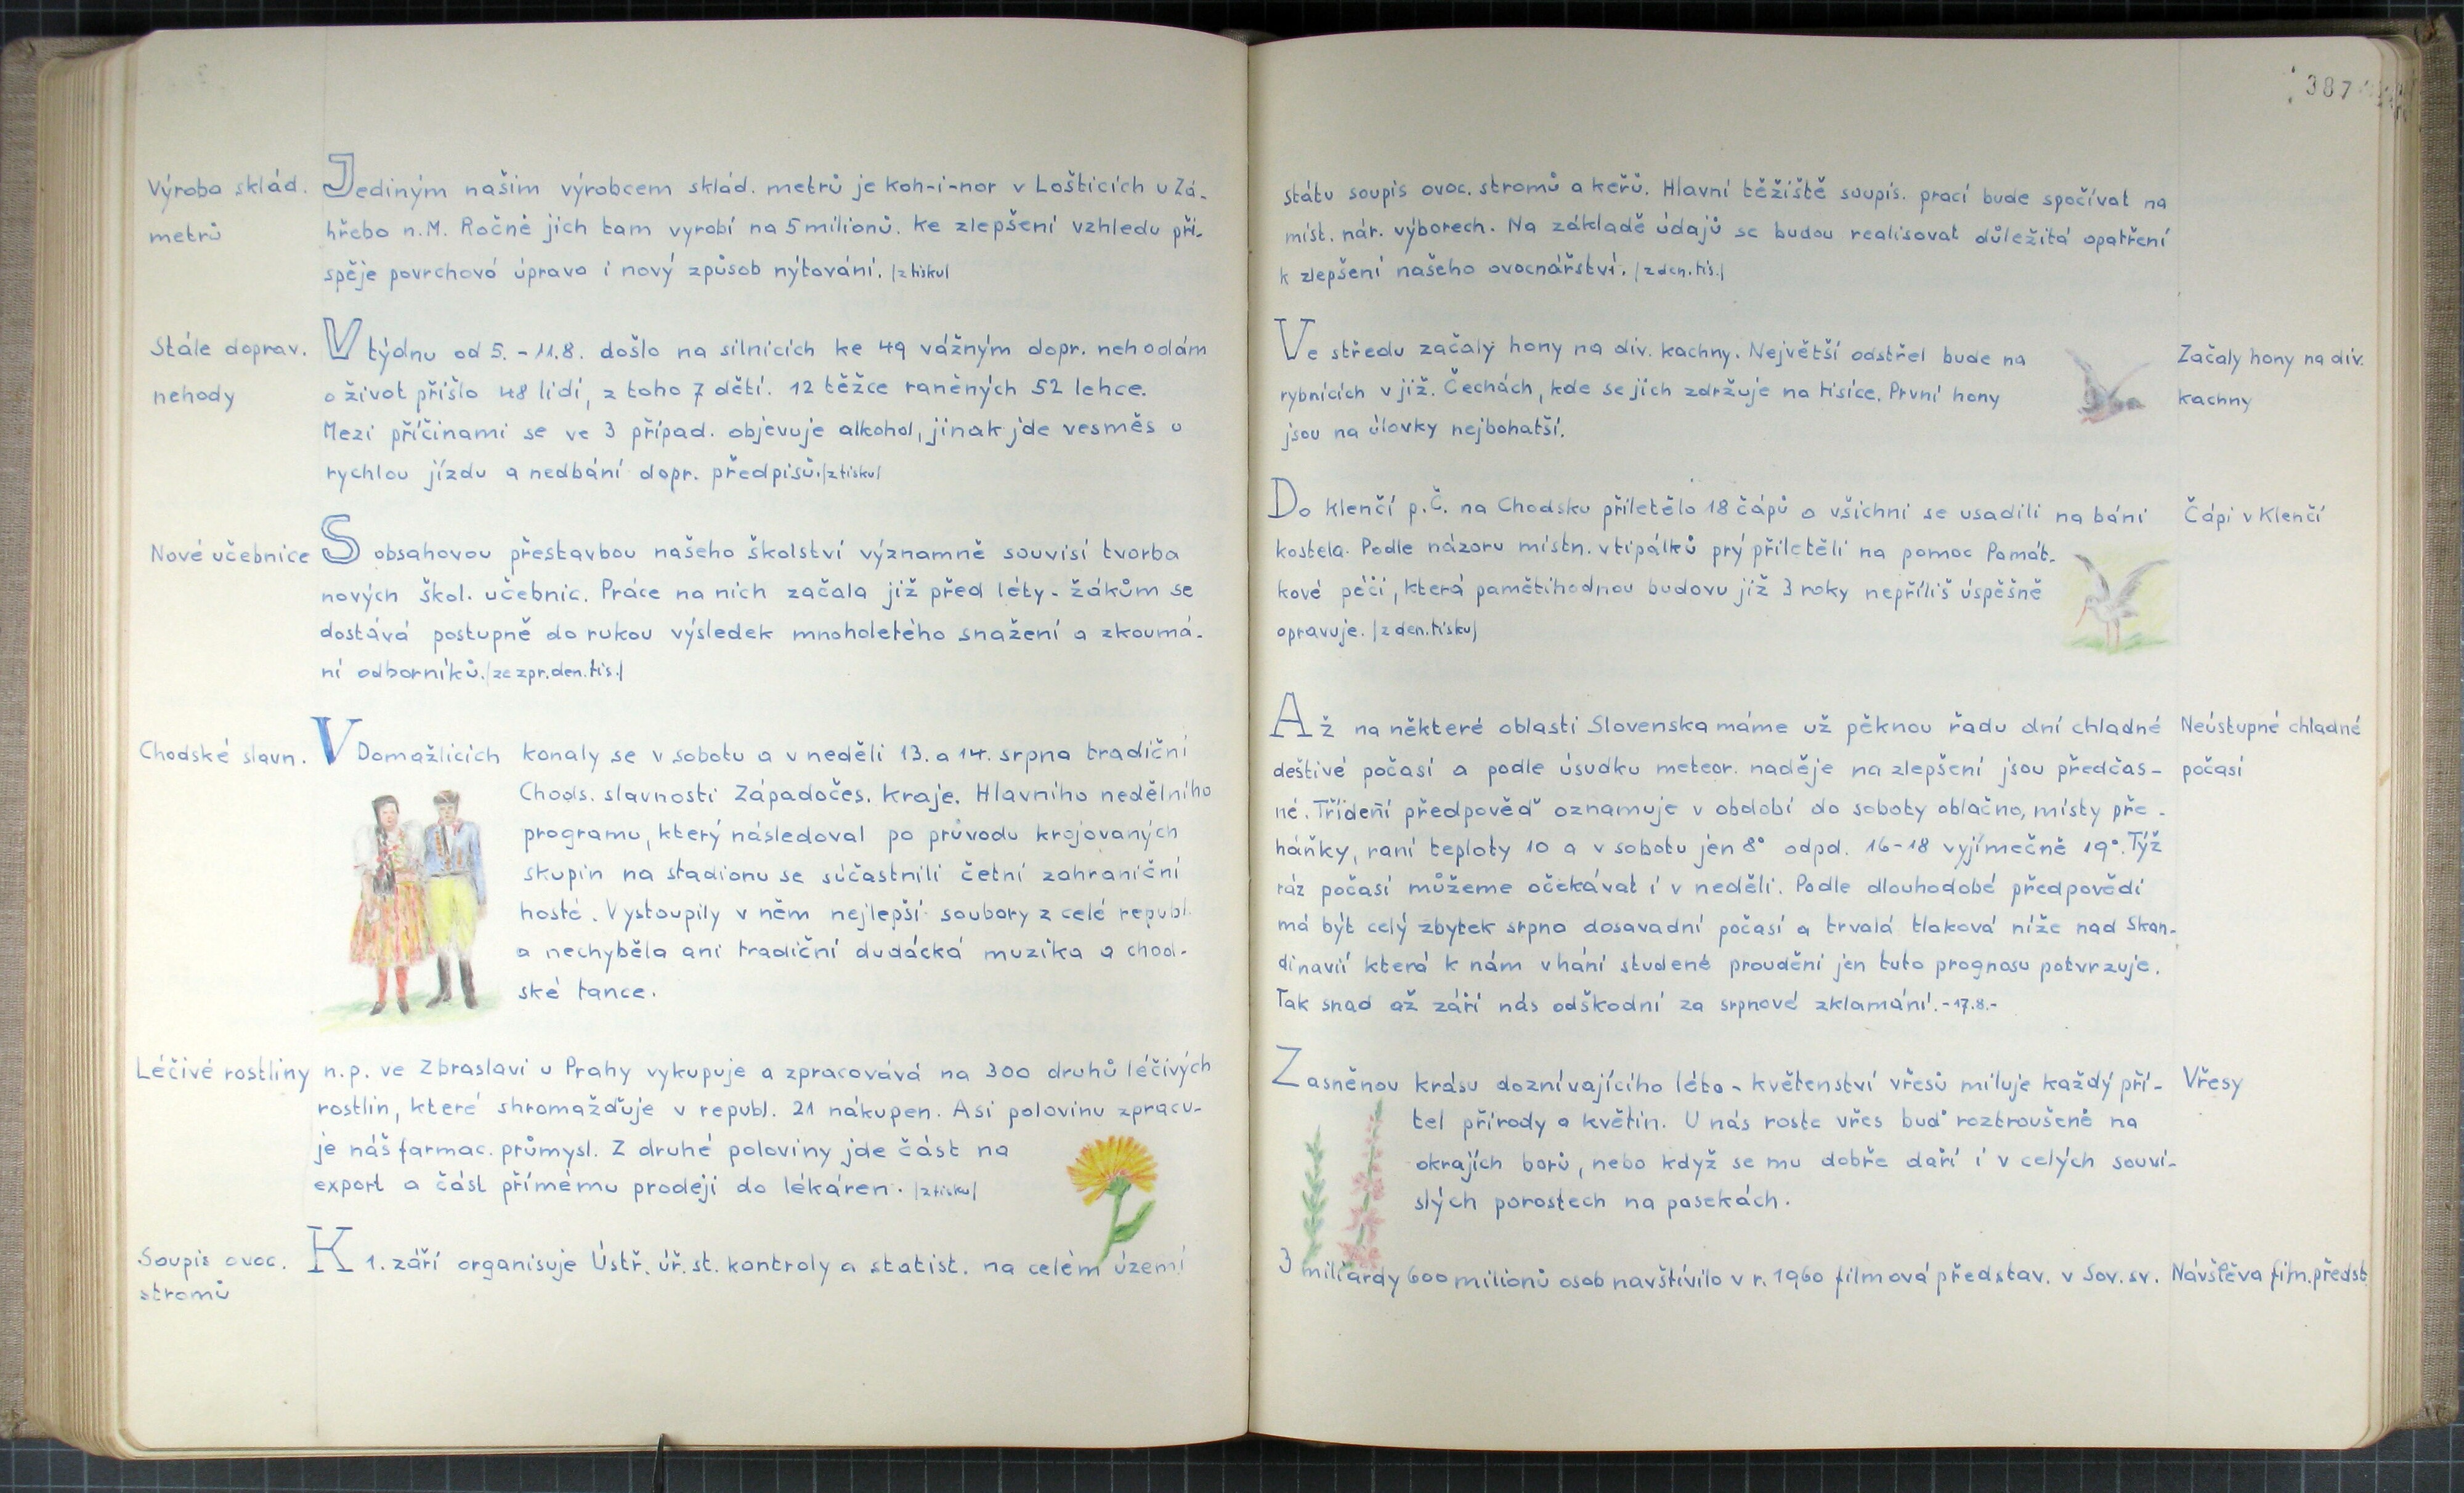 387
Výroba sklád.
metrů
Jediným našim výrobcem sklád. metrů je koh-i-nor v Lošticích u Zá-
hřeba n. M. Ročně jich tam vyrobí na 5 milionů. ke zlepšení vzhledu při-
spěje povrchová úprava i nový způsob nýtování. /z tisku/
Stále doprav.
nehody
V týdnu od 5. - 11.8. došlo na silnicích ke 49 vážným dopr. nehodám
o život přišlo 48 lidí, z toho 7 dětí. 12 těžce raněných 52 lehce.
Mezi příčinami se ve 3 případ. objevuje alkohol, jinak jde vesměs o
rychlou jízdu a nedbání dopr. předpisů. /z tisku/
Nové učebnice
S obsahovou přestavbou našeho školství významně souvisí tvorba
nových škol. učebnic. Práce na nich začala již před léty - žákům se
dostává postupně do rukou výsledek mnoholetého snažení a zkoumá-
ní odborníků. /ze zpr. den. tis./
Chodské slavn.
V Domažlicích konaly se v sobotu a v neděli 13. a 14. srpna tradiční
Chods. slavnosti Západočes. kraje. Hlavního nedělního
programu, který následoval po průvodu krojovaných
skupin na stadionu se súčastnili četní zahraniční
hosté. Vystoupily v něm nejlepší soubory z celé republ.
a nechyběla ani tradiční dudácká muzika a chod-
ské tance.
Léčivé rostliny
n.p. ve Zbraslavi u Prahy vykupuje a zpracovává na 300 druhů léčivých
rostlin, které shromažďuje v republ. 21 nákupen. Asi polovinu zpracu-
je náš farmac. průmysl. Z druhé poloviny jde část na
export a část přímému prodeji do lékáren. /z tisku/
Soupis ovoc.
stromů
K 1. září organisuje Ústř. úř. st. kontroly a statist. na celém území
státu soupis ovoc. stromů a keřů. Hlavní těžiště soupis. prací bude spočívat na
míst. nár. výborech. Na základě údajů se budou realisovat důležitá opatření
k zlepšení našeho ovocnářství. /z den. tis./
Ve středu začaly hony na div. kachny. Největší odstřel bude na
rybnících v již. Čechách, kde se jich zdržuje na tisíce. První hony
jsou na úlovky nejbohatší.
Začaly hony na div.
kachny
Do klenčí p. Č. na Chodsku přiletělo 18 čápů a všichni se usadili na báni
kostela. Podle názoru místn. vtipálků prý přiletěli na pomoc Památ-
kové péči, která pamětihodnou budovu již 3 roky nepříliš úspěšně
opravuje. /z den. tisku/
Čápi v Klenčí
Až na některé oblasti Slovenska máme už pěknou řadu dní chladné
deštivé počasí a podle úsudku meteor. naděje na zlepšení jsou předčas-
né. Třídení předpověď oznamuje v období do soboty oblačno, místy pře-
háňky, raní teploty 10 a v sobotu jen 8° odpd. 16-18 vyjímečně 19°. Týž
ráz počasí můžeme očekávat i v neděli. Podle dlouhodobé předpovědi
má být celý zbytek srpna dosavadní počasí a trvalá tlaková níže nad Skan-
dinavií která k nám vhání studené proudění jen tuto prognosu potvrzuje.
Tak snad až září nás odškodní za srpnové zklamání. - 17.8. -
Neústupné chladné
počasí
Zasněnou krásu doznívajícího léta - květenství vřesů miluje každý pří-
tel přírody a květin. U nás roste vřes buď roztroušeně na
okrajích borů, nebo když se mu dobře daří i v celých souvi-
slých porostech na pasekách.
Vřesy
3 miliardy 600 milionů osob navštívilo v r. 1960 filmová představ. v Sov. sv.
Návštěva film. předst.